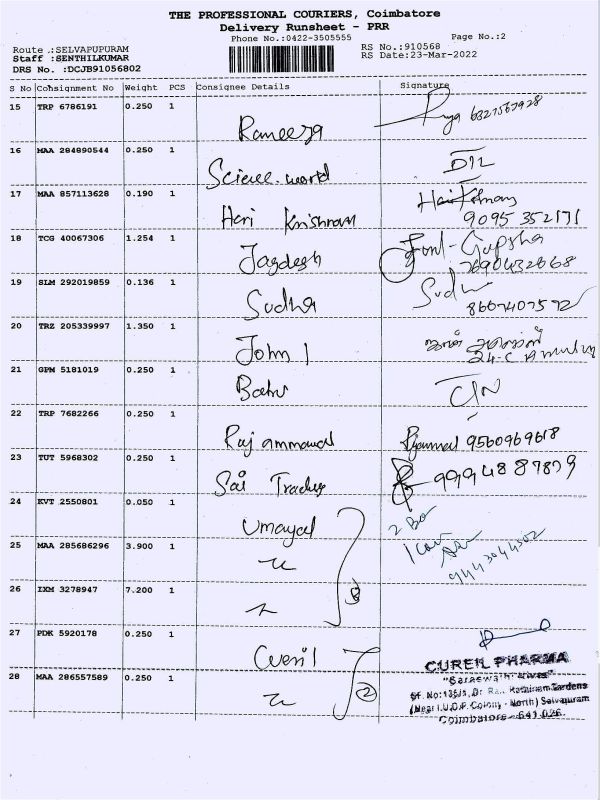 THE PROFESSIONAL COURIERS, Coimbatore
Delivery Runsheet - PRR
Phone No.:0422-3505555
Page No.:2
Route .:SELVAPUPURAM
RS No.:910568
Staff :SENTHILKUMAR
RS Date:23-Mar-2022
DRS No. :DCJB91056802
S No Consignment No Weight PCS Consignee Details Signature
15 TRP 6786191 0.250 1
Rameeza
16 MAA 284890544 0.250 1
Science world
17 MAA 857113628 0.190 1
Hari Krishnam 9095 352171
18 TCG 40067306 1.254 1
Jagdesh
19 SLM 292019859 0.136 1
Sudha Sudh
20 TRZ 205339997 1.350 1
John 1
21 GPM 5181019 0.250 1
Babu
22 TRP 7682266 0.250 1
Rajammal 9560969618
23 TUT 5968302 0.250 1
Sai Traders 9994887879
24 KVT 2550801 0.050 1
Umayal
25 MAA 285686296 3.900 1
26 IXM 3278947 7.200 1
3
27 PDK 5920178 0.250 1
Cureil
28 MAA 286557589 0.250 1
2
CUREIL PHARMA
"Saraswathi Nivas"
(Near I.U.D.P. Colony - North) Selvapuram
Coimbatore - 641 026.